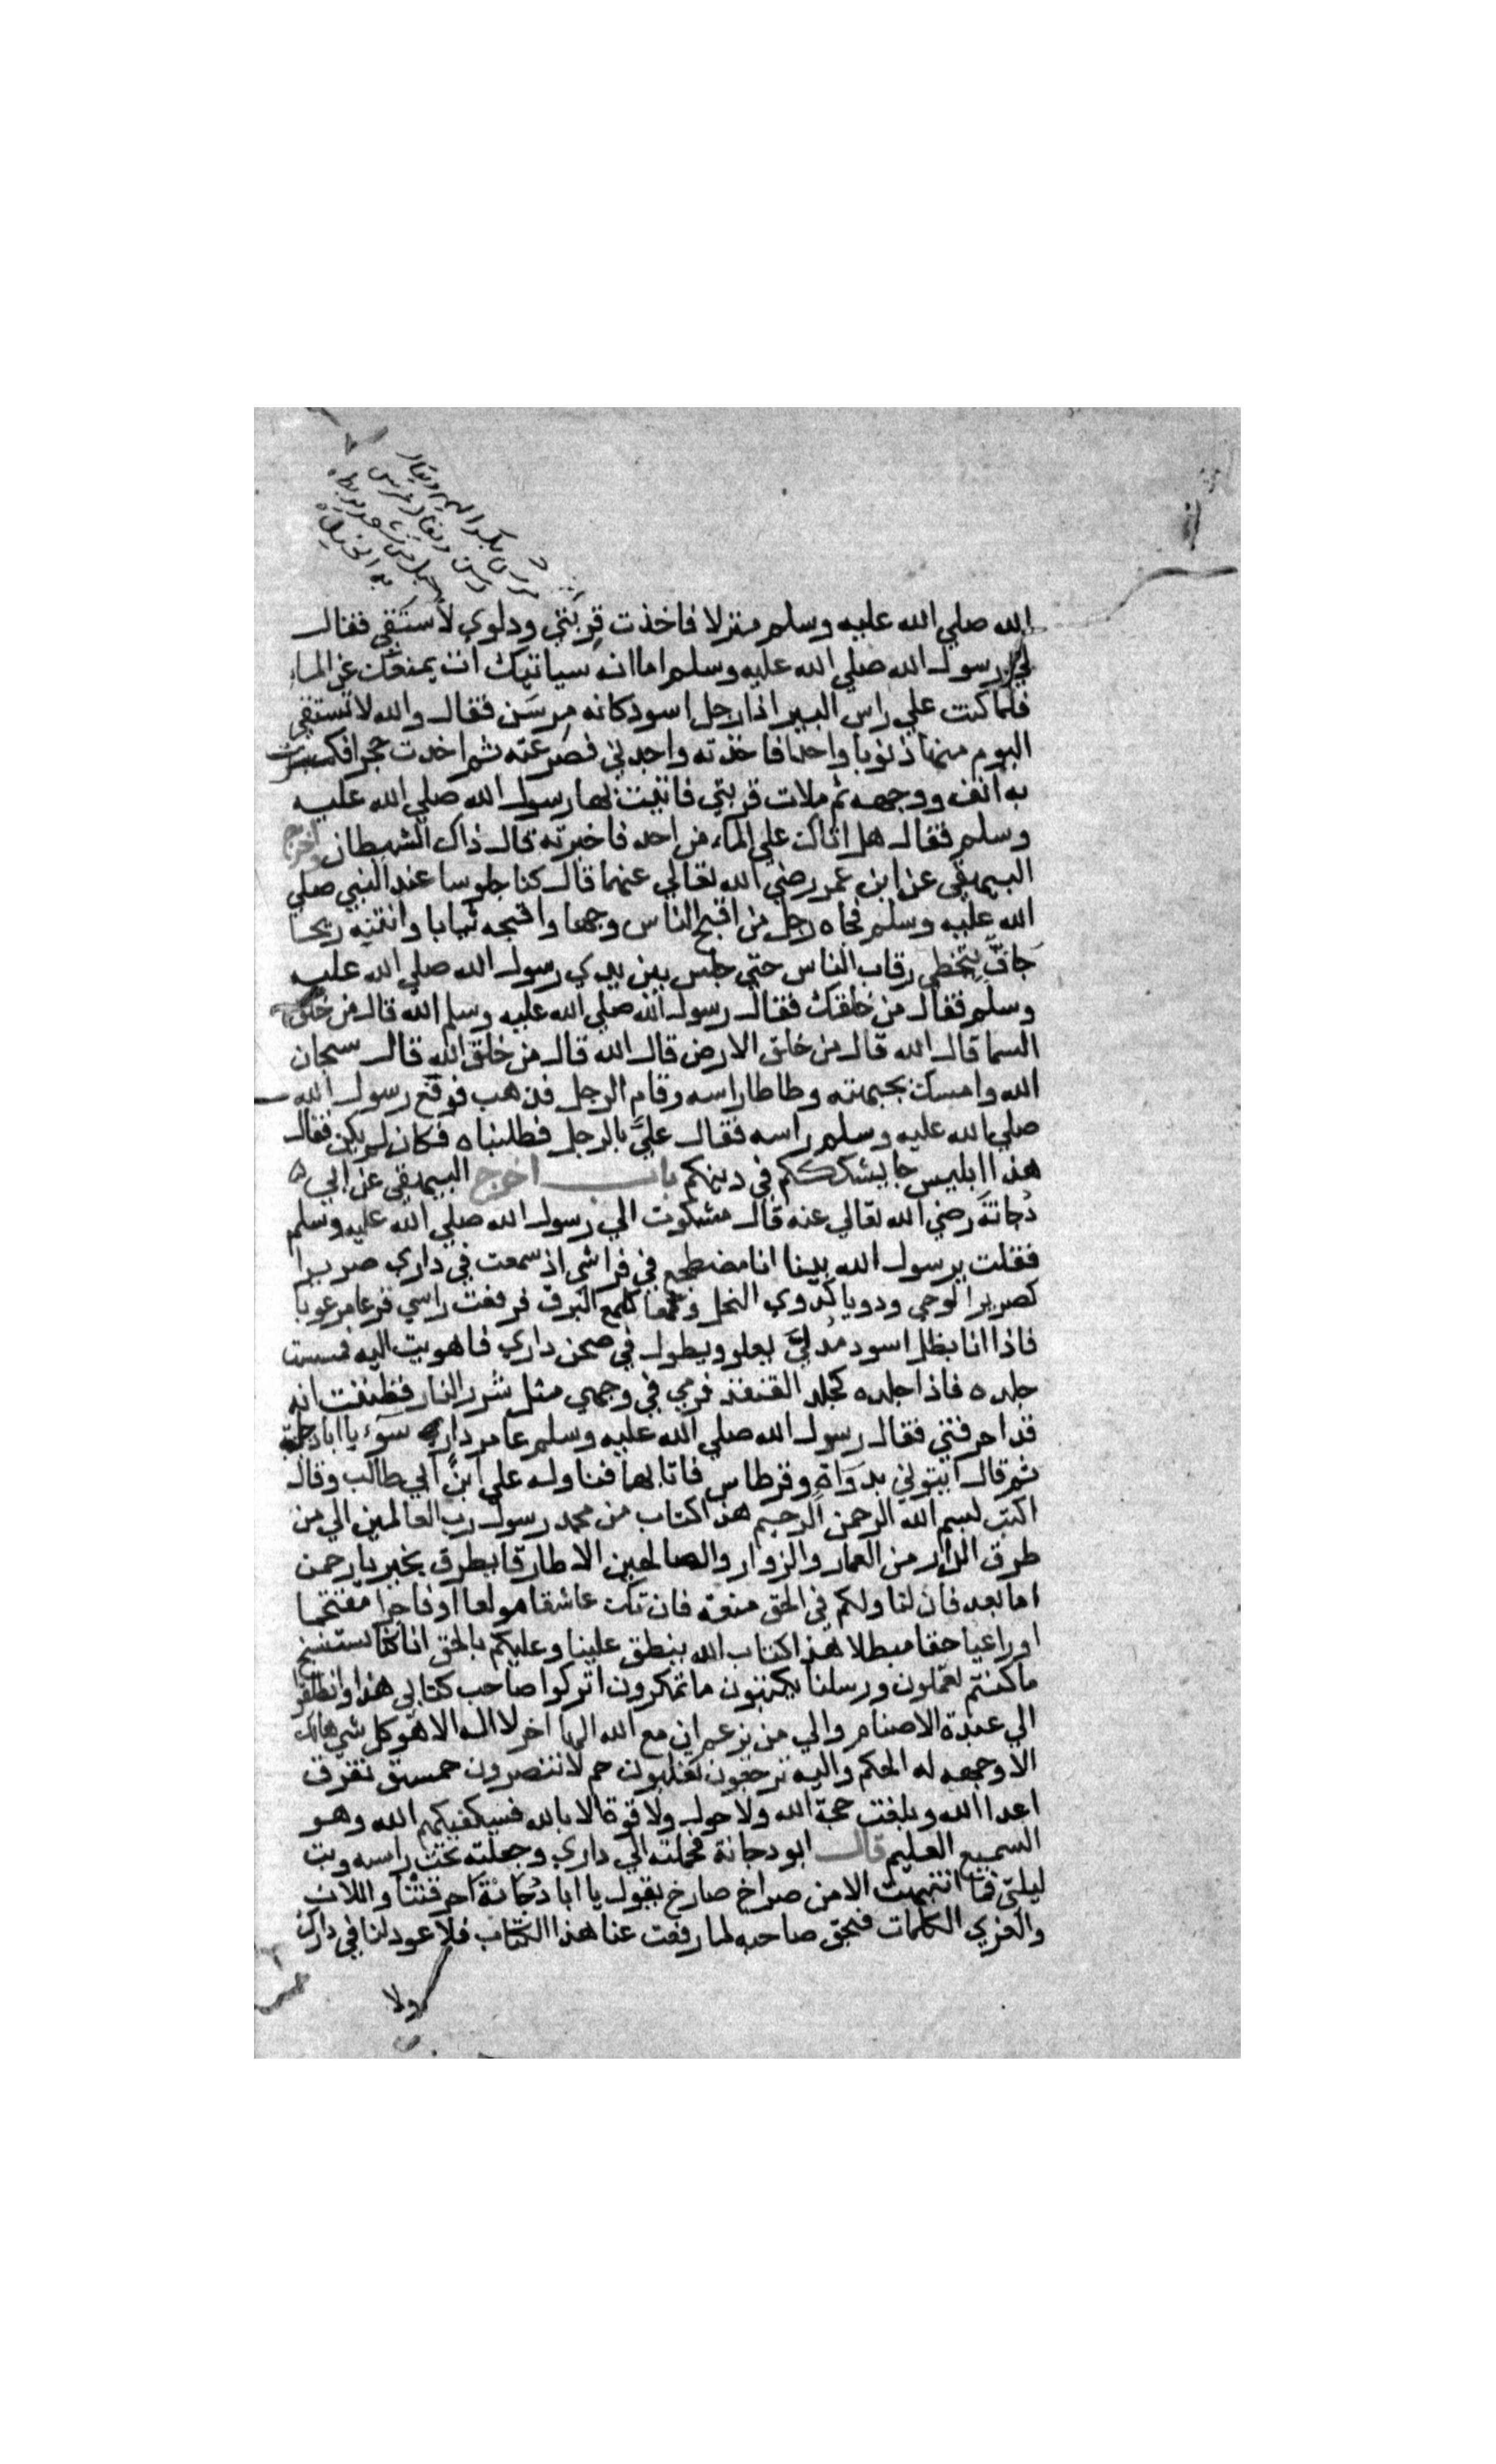 الله صلي الله عليه وسلم منزلا فاخذت قربتي ودلوي لاستقي فقال
لي رسول الله صلي الله عليه وسلم اما انه سياتيك ات يمنعك عن الماء
فلما كنت علي راس البير اذا رجل اسود كانه مرسن فقال والله لا تستقي
اليوم منها ذنوبا واحدا فاخذته واخذني فصرعته ثم اخذت حجرا فكسرت
به انفه ووجهه ثم ملات قربتي فاتيت بها رسول الله صلي الله عليه
وسلم فقال هل اتاك علي الماء من احد فاخبرته قال ذاك الشيطان واخرج
البيهقي عن ابن عمر رضي الله تعالي عنهما قال كنا جلوسا عند النبي صلي
الله عليه وسلم فجاه رجل من اقبح الناس وجها واقبحه ثيابا وانتنه ريحا
جاف يتخطي رقاب الناس حتي جلس بين يدي رسول الله صلي الله عليه
وسلم فقال من خلقك فقال رسول الله صلي الله عليه وسلم الله قال من خلق
السما قال الله قال من خلق الارض قال الله قال من خلق الله قال سبحان
الله وامسك بجبهته وطاطا راسه وقام الرجل فذهب فرفع رسول الله
صلي الله عليه وسلم راسه فقال علي بالرجل فطلبناه فكان لم يكن فقال
هذا ابليس جا يشككم في دينكم باب اخرج البيهقي عن ابي
دجانة رضي الله تعالي عنه قال شكوت الي رسول الله صلي الله عليه وسلم
فقلت يرسول الله بينا انا مضطجع في فراشي اذ سمعت في داري صريرا
كصرير الوحي ودويا كدوي النحل ولمعا كلمع البرق فرفعت راسي فزعا مرعوبا
فاذا انا بظل اسود مدلي يعلو ويطول في صحن داري فاهويت اليه فمسست
جلده فاذا جلده كجلد القنفذ فرمي في وجهي مثل شرر النار فظننت انه
قد احرقني فقال رسول الله صلي الله عليه وسلم عامر دارك سوء يا ابا دجانة
ثم قال ايتوني بدواة وقرطاس فاتا بهما فناوله علي ابن ابي طالب وقال
اكتب بسم الله الرحمن الرحيم هذا كتاب من محمد رسول رب العالمين الي من
طرق الدار من العمار والزوار والصالحين الا طارقا يطرق بخير يا رحمن
اما بعد فان لنا ولكم في الحق منعة فان تك عاشقا مولعا او فاجرا مقتحما
او راعيا حقا مبطلا هذا كتاب الله ينطق علينا وعليكم بالحق انا كنا نستنسخ
ما كنتم تعملون ورسلنا يكتبون ما تمكرون اتركوا صاحب كتابي هذا وانطلقوا
الي عبدة الاصنام والي من يزعم ان مع الله الها اخر لا اله الا هو كل شي هالك
الا وجهه له الحكم واليه ترجعون تغلبون حم لا تنصرون حمسق تفرق
اعدا الله وبلغت حجة الله ولا حول ولا قوة الا بالله فسيكفيكهم الله وهو
السميع العليم قال ابو دجانة فحملته الي داري وجعلته تحت راسه وبت
ليلتي فما انتبهت الا من صراخ صارخ يقول يا ابا دجانة احرقتنا واللات
والعزي الكلمات فبحق صاحبه لما رفعت عنا هذا الكتاب فلا عود لنا في دارك
ولا